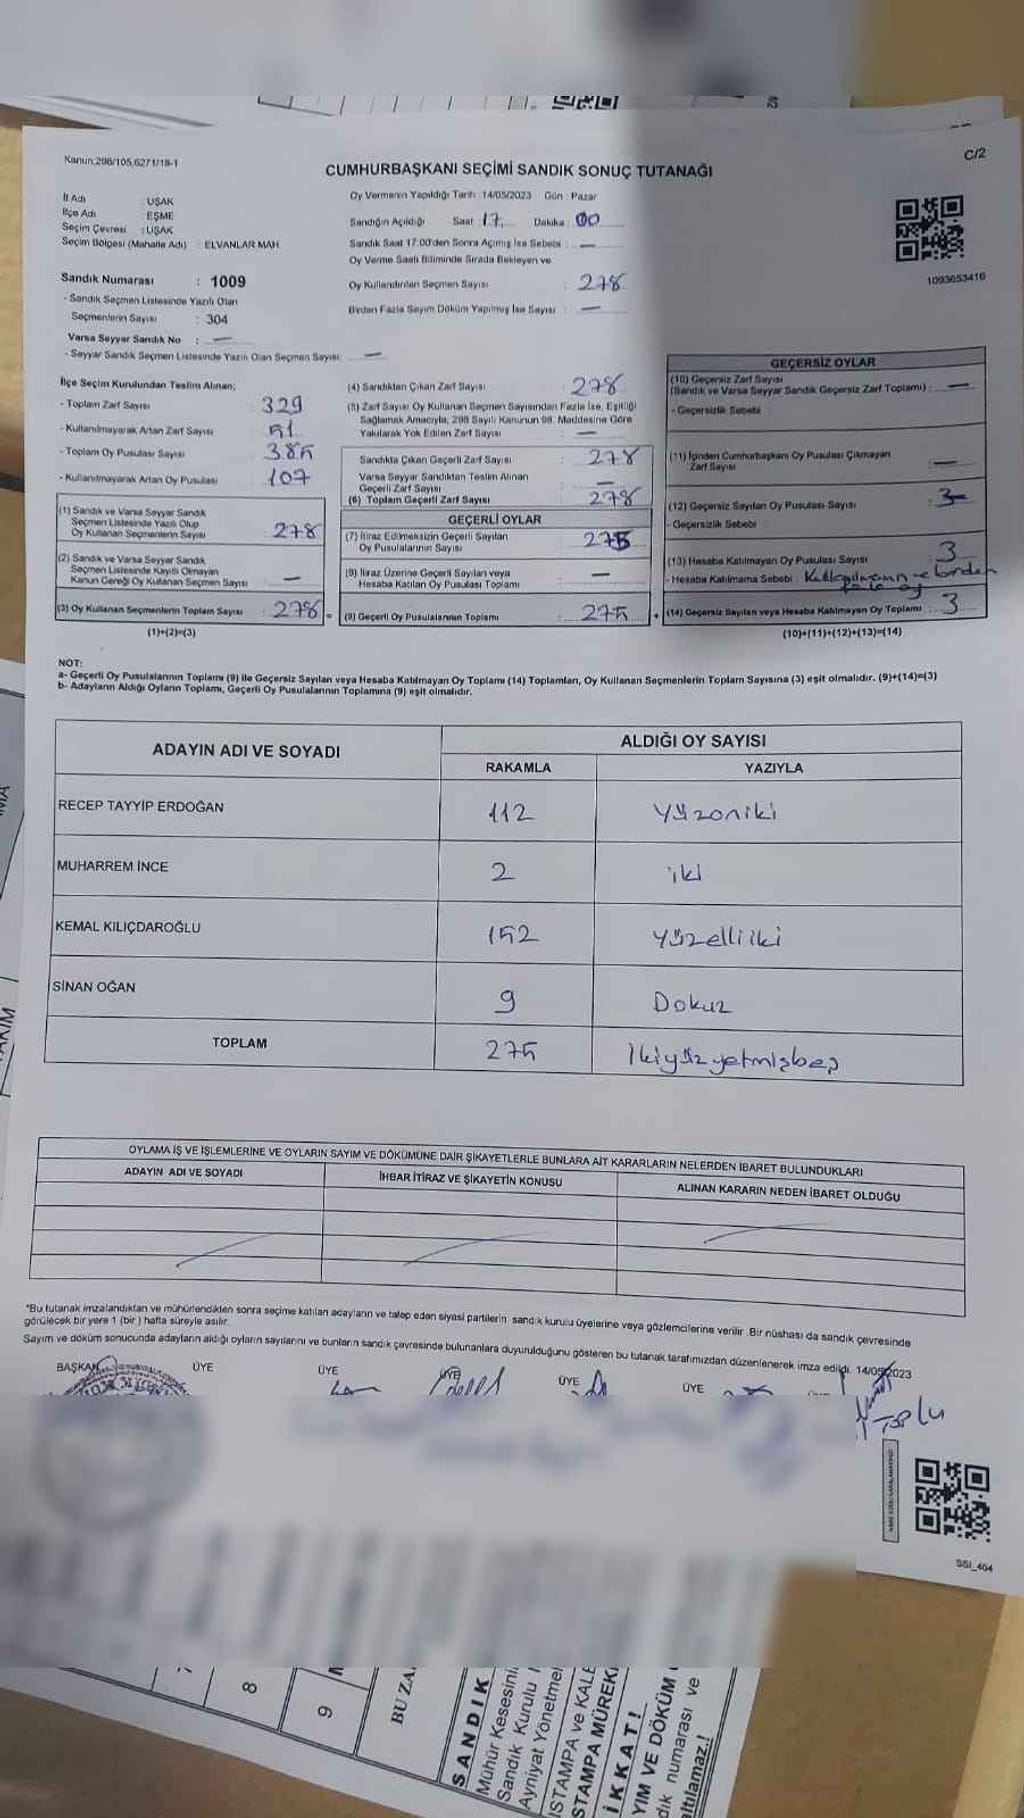 Kanun,298/105,6271/18-1
C/2
CUMHURBAŞKANI SEÇİMİ SANDIK SONUÇ TUTANAĞI
İl Adı : UŞAK
İlçe Adı : EŞME
Seçim Çevresi : UŞAK
Seçim Bölgesi (Mahalle Adı) : ELVANLAR MAH
Oy Vermenin Yapıldığı Tarih :14/05/2023 Gün : Pazar
Sandığın Açıldığı Saat : 17 Dakika : 00
Sandık Saat 17:00'den Sonra Açılmış İse Sebebi : —
Oy Verme Saati Bitiminde Sırada Bekleyen ve
Oy Kullandırılan Seçmen Sayısı : 278
Birden Fazla Sayım Döküm Yapılmış İse Sayısı : —
1093653416
Sandık Numarası : 1009
- Sandık Seçmen Listesinde Yazılı Olan
Seçmenlerin Sayısı : 304
Varsa Seyyar Sandık No : —
- Seyyar Sandık Seçmen Listesinde Yazılı Olan Seçmen Sayısı : —
İlçe Seçim Kurulundan Teslim Alınan;
- Toplam Zarf Sayısı : 329
- Kullanılmayarak Artan Zarf Sayısı : 51
- Toplam Oy Pusulası Sayısı : 385
- Kullanılmayarak Artan Oy Pusulası : 107
(1) Sandık ve Varsa Seyyar Sandık
Seçmen Listesinde Yazılı Olup
Oy Kullanan Seçmenlerin Sayısı : 278
(2) Sandık ve Varsa Seyyar Sandık
Seçmen Listesinde Kayıtlı Olmayan
Kanun Gereği Oy Kullanan Seçmen Sayısı : —
(3) Oy Kullanan Seçmenlerin Toplam Sayısı : 278 =
(1)+(2)=(3)
(4) Sandıktan Çıkan Zarf Sayısı : 278
(5) Zarf Sayısı Oy Kullanan Seçmen Sayısından Fazla İse, Eşitliği
Sağlamak Amacıyla, 298 Sayılı Kanunun 98. Maddesine Göre
Yakılarak Yok Edilen Zarf Sayısı : —
Sandıkta Çıkan Geçerli Zarf Sayısı : 278
Varsa Seyyar Sandıktan Teslim Alınan
Geçerli Zarf Sayısı : —
(6) Toplam Geçerli Zarf Sayısı : 278
GEÇERLİ OYLAR
(7) İtiraz Edilmeksizin Geçerli Sayılan
Oy Pusulalarının Sayısı : 275
(8) İtiraz Üzerine Geçerli Sayılan veya
Hesaba Katılan Oy Pusulası Toplamı : —
(9) Geçerli Oy Pusulalarının Toplamı : 275 +
GEÇERSİZ OYLAR
(10) Geçersiz Zarf Sayısı
(Sandık ve Varsa Seyyar Sandık Geçersiz Zarf Toplamı) : —
- Geçersizlik Sebebi :
(11) İçinden Cumhurbaşkanı Oy Pusulası Çıkmayan
Zarf Sayısı : —
(12) Geçersiz Sayılan Oy Pusulası Sayısı : 3
- Geçersizlik Sebebi :
(13) Hesaba Katılmayan Oy Pusulası Sayısı : 3
- Hesaba Katılmama Sebebi : ve birden
fazla oy
(14) Geçersiz Sayılan veya Hesaba Katılmayan Oy Toplamı : 3
(10)+(11)+(12)+(13)=(14)
NOT:
a- Geçerli Oy Pusulalarının Toplamı (9) ile Geçersiz Sayılan veya Hesaba Katılmayan Oy Toplamı (14) Toplamları, Oy Kullanan Seçmenlerin Toplam Sayısına (3) eşit olmalıdır. (9)+(14)=(3)
b- Adayların Aldığı Oyların Toplamı, Geçerli Oy Pusulalarının Toplamına (9) eşit olmalıdır.
ADAYIN ADI VE SOYADI
ALDIĞI OY SAYISI
RAKAMLA YAZIYLA
RECEP TAYYİP ERDOĞAN 112 Yüzoniki
MUHARREM İNCE 2 iki
KEMAL KILIÇDAROĞLU 152 Yüzelliiki
SİNAN OĞAN 9 Dokuz
TOPLAM 275 İkiyüzyetmişbeş
OYLAMA İŞ VE İŞLEMLERİNE VE OYLARIN SAYIM VE DÖKÜMÜNE DAİR ŞİKAYETLERLE BUNLARA AİT KARARLARIN NELERDEN İBARET BULUNDUKLARI
ADAYIN ADI VE SOYADI İHBAR İTİRAZ VE ŞİKAYETİN KONUSU ALINAN KARARIN NEDEN İBARET OLDUĞU
*Bu tutanak imzalandıktan ve mühürlendikten sonra seçime katılan adayların ve talep eden siyasi partilerin sandık kurulu üyelerine veya gözlemcilerine verilir .Bir nüshası da sandık çevresinde
görülecek bir yere 1 (bir ) hafta süreyle asılır.
Sayım ve döküm sonucunda adayların aldığı oyların sayılarını ve bunların sandık çevresinde bulunanlara duyurulduğunu gösteren bu tutanak tarafımızdan düzenlenerek imza edildi. 14/05/2023
BAŞKAN ÜYE ÜYE ÜYE ÜYE ÜYE
SSI_404
8
9
BU ZA
SANDIK
Mühür Kesesini
Sandık Kurulu
Ayniyat Yönetmel
ISTAMPA ve KALE
STAMPA MÜREK
İKKAT!
YIM VE DÖKÜM
dık numarası ve
atılamaz.!